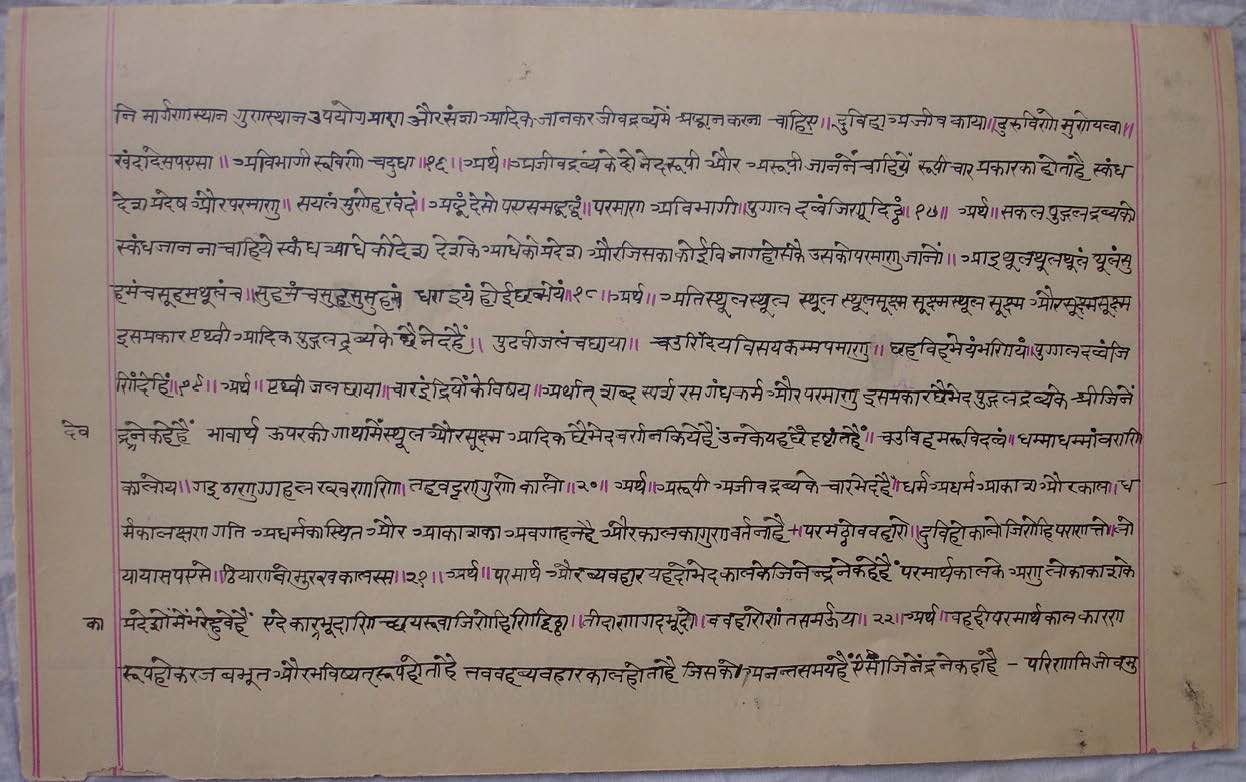 नि मार्गणास्थान गुणस्थान उपयोग प्राण और संज्ञा आदिक जानकर जीवद्रव्यमें श्रद्धान करना चाहिए॥ दुविहा अजीव काया॥
खंदा देस पएसा॥ अविभागी रूविणो चदुधा॥१६॥ अर्थ॥ अजीवद्रव्यके दो भेद रूपी और अरूपी जानने चाहियें रूपी चार प्रकारका होताहै स्कंध
देश प्रदेष और परमाणु॥ सयलं मुणेह खंदं॥ अद्धं देसो पएसमद्धद्धं॥ परमाणा अविभागी॥ पुग्गल दव्वं जिणुद्दिट्ठं॥१७॥ अर्थ॥ सकल पुद्गलद्रव्यको
स्कंध जानना चाहिये स्कंध आधेको देश देशके आधेको प्रदेश और जिसका कोई विभाग होसके उसको परमाणु जानों॥ थूलथूलथूलं थूलंसु
हमं च सूहमथूलं च॥ सुहमं च धराइयं होई छब्भेयं॥१८॥ अर्थ॥ अतिस्थूलस्थूल स्थूल स्थूलसूक्ष्म सूक्ष्मस्थूल सूक्ष्म और सूक्ष्मसूक्ष्म
इसप्रकार पृथ्वी आदिक पुद्गलद्रव्यके छै भेदहैं॥ पुढवी जलं च छाया॥ चउरिंदियविसयकम्मपमाणु॥ छहविहभेयं भणियं॥ पुग्गल दव्वं जि
णिंदेहिं॥१९॥ अर्थ॥ पृथ्वी जल छाया॥ चार इंद्रियोंके विषय॥ अर्थात् शब्द स्पर्श रस गंध कर्म और परमाणु इसप्रकार छैभेद पुद्गलद्रव्यके श्रीजिनें
देव द्रनेकहेहैं भावार्थ ऊपरकी गाथामें स्थूल और सूक्ष्म आदिक छैभेद वर्णन कियेहैं उनके यह छै दृष्टांतहैं॥ चउविहमरूविदव्वं॥ धम्माधम्मांवराणि
कालोय॥ गइ ठाणुग्गहल रकणाणि॥ तहवट्टणगुणो कालो॥२०॥ अर्थ॥ अरूपी अजीवद्रव्यके चारभेदहैं॥ धर्म अधर्म आकाश और काल॥ ध
र्मका लक्षण गति अधर्मका स्थित और आकाशका अवगाहनहै और कालका गुण वर्तनाहै + परमट्ठोववहारो॥ दुविहो कालो जिणेहि पण्णत्तो॥ लो
यायासपएसे॥ कालस्स॥२१॥ अर्थ॥ परमार्थ और व्यवहार यहदोभेद कालके जिनेन्द्रनेकहेहैं परमार्थकालके अणु लोकाकाशके
का प्रदेशोंमें भरेहुवेहैं जिणेहिणिद्दिट्ठा॥ तीदाणागदभूदो॥ ववहारो णंतसमऊय॥२२॥ अर्थ॥ वहही परमार्थकाल कारण
रूपहोकर जब भूत और भविष्यत्रूपहोताहै तब वह व्यवहारकालहोताहै जिसके अनन्तसमयहैं ऐसा जिनेंद्रनेकहाहै – परिणामि जीवमु